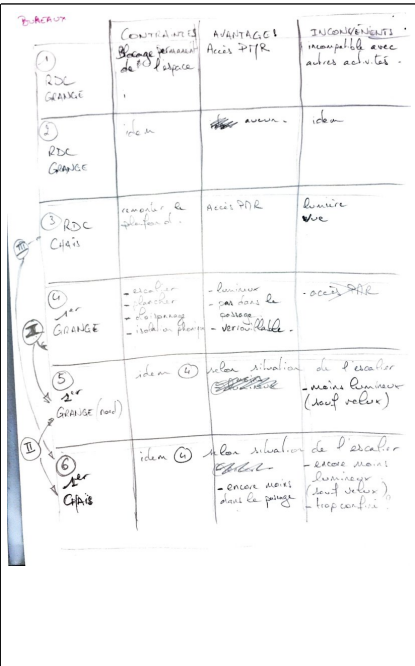 BUREAUX
CONTRAINTES
Blocage permanent
de l'espace
AVANTAGES
Accès PMR
INCONVÉNIENTS
incompatible avec
autres activités.
1
RDC
GRANGE
2
RDC
GRANGE
idem
aucun.
idem
3 RDC
CHAIS
remonter le
plafond.
Accès PMR
lumière
vue
III
4
1er
GRANGE
- escalier
- plancher
- cloisonnage
- isolation
- lumineux
- pas dans le
passage
- verrouillable.
- accès PMR
I
5
1er
GRANGE (nord)
idem 4
selon situation de l'escalier
- moins lumineux
(sauf velux)
II
6
1er
CHAIS
idem 4
selon situation de l'escalier
- encore moins
dans le passage
- encore moins
lumineux
(sauf velux)
- trop confiné